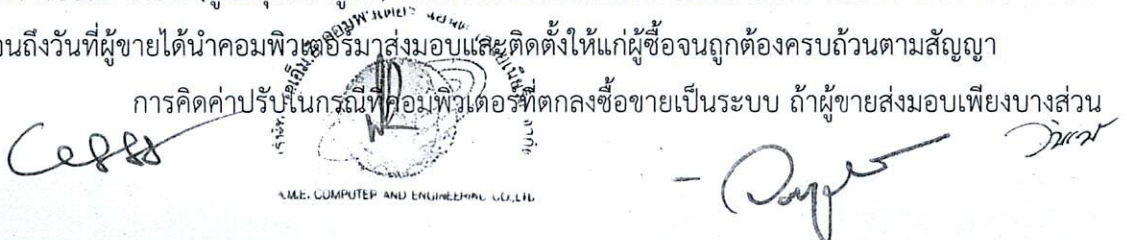 จนถึงวันที่ผู้ขายได้นำคอมพิวเตอร์มาส่งมอบและติดตั้งให้แก่ผู้ซื้อจนถูกต้องครบถ้วนตามสัญญา
การคิดค่าปรับในกรณีที่คอมพิวเตอร์ที่ตกลงซื้อขายเป็นระบบ ถ้าผู้ขายส่งมอบเพียงบางส่วน
COMPUTER AND ENGINEERING CO.,LTD